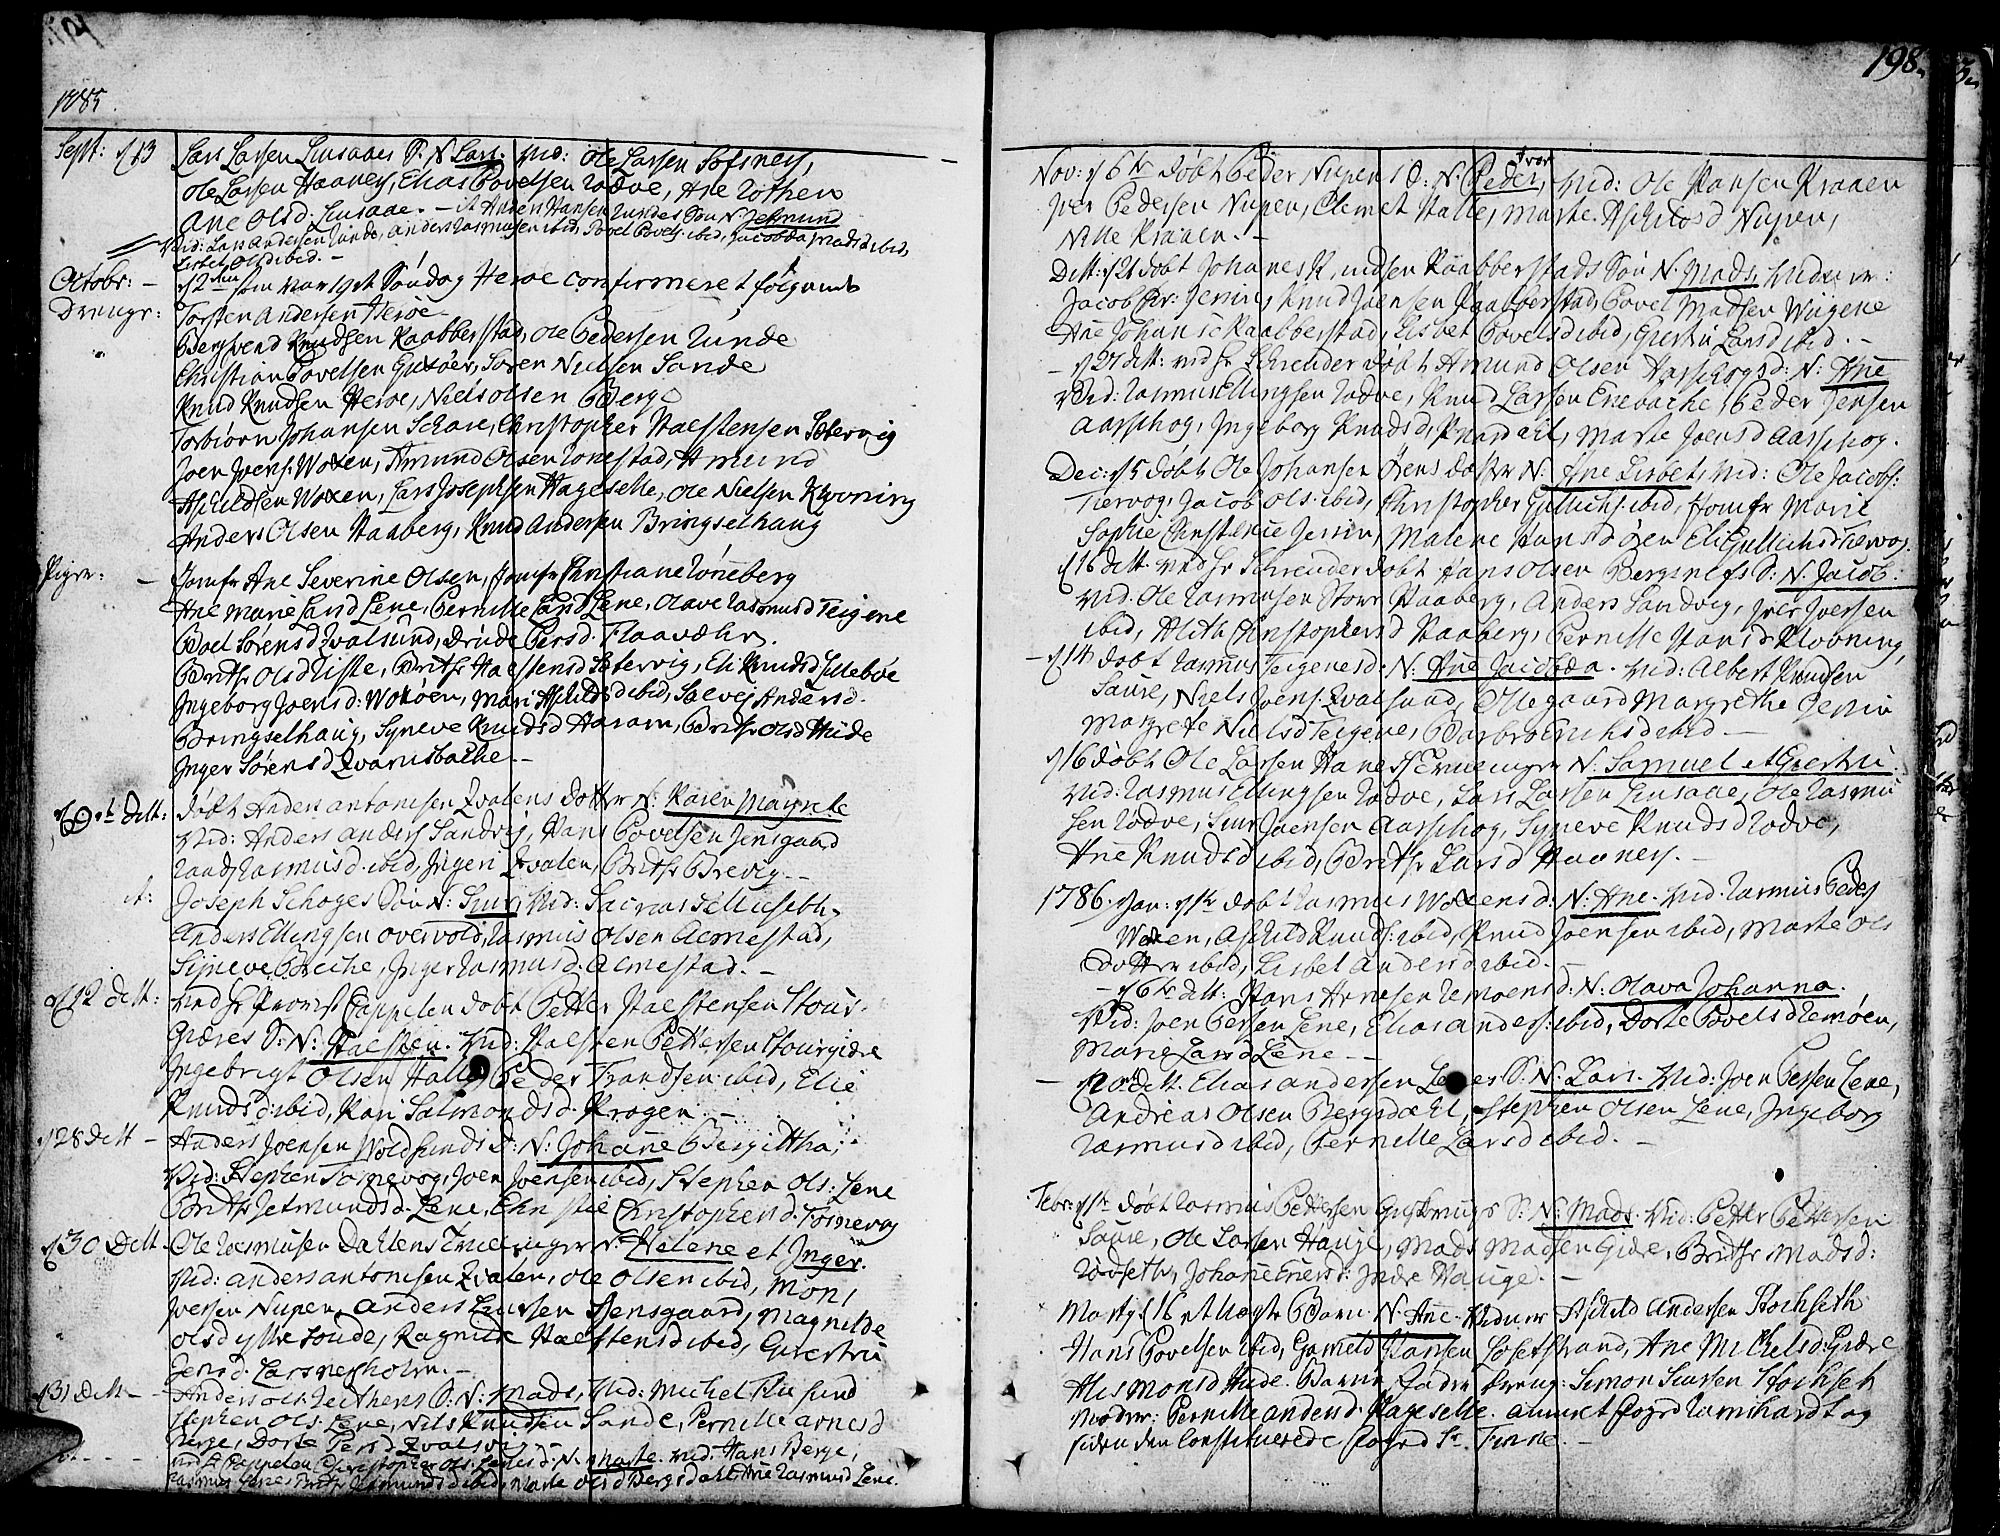 1785
Sept: d 13 Lars Larsen Liusaaes S. N Lars. Vid: Ole Larsen Søfsnes,
Ole Larsen Haanes, Elias Povelsen Rødve, Ane Rothen
Ane Olsd: Liusaae. – it Anders Hansen Rundes Søn N. Jetmund
Vid: Lars Andersen Runde, Anders Rasmusen ibid, Povel Povels: ibid, Jacobæa Madsd ibid,
Lisbet Olsd ibid. –
Octobr: – d 2den som var 19st Søndag Herøe confirmeret følgende
Drenge: Torsten Andersen Herøe
Bergsvend Knudsen Raabberstad, Ole Pedersen Runde
Christian Povelsen Gutøer, Soren Nielsen Sande
Knud Knudsen Herøe, Niels Olsen Berge
Torbiørn Johansen Schare, Christopher Halstensen Sætervig
Joen Joens: Woxen, Amund Olsen Tonestad, Amund
Aschildsen Woxen, Lars Josephsen Hageselle, Ole Nielsen Kloning
Anders Olsen Haaberg, Knud Andersen Bringselhaug
Piger: – Jomfr Ane Severine Olsen, Jomfr Christiane Rønneberg
Ane Marie Larsd Lene, Pernille Larsd Lene, Olave Rasmusd Teigene
Boel Sørensd Qvalsund, Drude Persd. Flaavær
Brithe Olsd Riste, Brithe Halstensd Sætervig, Eli Knudsd Silleboe
Ingeborg Joensd: Woxøen, Mari Aschildsd ibid, Solvej Andersd.
Bringselhaug, Syneve Knudsd Haram, Brithe Olsd Hide
Inger Sørensd Qvarnsbache. –
d 9de dett: døbt Anders Antonisen Qvalens Dotter N: Karen Margrete
Vid: Anders Anders Sandvig, Hans Povelsen Jensgaard
Rand. Rasmusd. ibid, Inger Qvalen, Brithe Brevig. –
it: Joseph Schoges Søn N: Siur, Vid: Sacrias
Anders Ellingsen Overvold, Rasmus Olsen Almestad,
Syneve Breche, Inger Rasmusd. Almestad. –
d 12 dett: ved Hr Provst Cappelen døbt Petter Halstensen Stour-
Giæres S: N: Halsten. Vid: Halsten Pettersen Stourgiære
Ingebrigt Olsen Halle, Peder Trondsen ibid, Elie
Knudsd. ibid, Kari Salmondsd. Krogen. –
d 28 dett – Anders Joensen Woldsunds D: N: Johanne Bergittha.
Vid: Stephen Tornevog, Joen Joensen ibid, Stephen Ols: Lene
Brithe Jetmundsd. Lene, Christie Christophersd. Tornevog
d 30 Dett. Ole Rasmusen Dahlens Tvillinger N: Helene et Inger.
Vid: Anders Antonisen Qvalen, Ole Olsen ibid, Mons
Joensen Nupen, Anders Larsen Jensgaard, Magnilde
Olsd Ytre Soude, Ragnilde Halstensd ibid, Giertrue
Jensd. Larsnesholm. –
d 31 dett – Anders Ols: Leithens S. N: Mads, Vid: Michel
Stephen Ols: Lene, Nils Knudsen Sande, Pernille Arnesd
Berge, Dorte Persd Qvalsvig
ved Hr Cappelen Christopher Ols: Lenes d: N: Marte. vid. Hans Berge,
Rasmus Lene, Brithe Jetmundsd ibid, Marte Olsd Bergsdahl, Ane Rasmusd Lene.
198.
Nov: d 6te døbt Peder Nupens D: N: Peder, Vid: Ole Hansen Kraaen
Iver
Iver Pedersen Nupen, Clemet Halle, Marte Aschildsd Nupen,
Nille Kraaen. –
Dett: d 21 døbt Johanes Knudsen Raabberstads Søn N. Mads, Vidner:
Jacob Chr: Jessing, Knud Joensen Raabberstad, Povel Madsen Wigene
Ane Johansd Raabberstad, Lisbet Povelsd ibid, Giertru Larsd ibid. –
– d 27 dett: ved Hr Schreuder døbt Amund Olsen Aarschogs d: N: Ane
Vid: Rasmus Ellingsen Rødve, Knud Larsen Enebache, Peder Jensen
Aarschog, Ingeborg Knudsd, Knardahl, Marte Joensd Aarschog.
Dec: d 5 døbt Ole Johansen Øens dotter N: Ane Lisbet, Vid: Ole Jacobs:
Tiervog, Jacob Ols: ibid, Christopher Gullichs: ibid, Jomfr Marie
Sophie Christence Jessen, Malene Hansd Øen Eli Gullichsd Tiervog.
d 16 dett. ved Hr Schreuder døbt Hans Olsen Bergsnefs S: N. Jacob.
Vid: Ole Rasmusen Store Haaberg, Anders Sandvig, Iver Iversen
ibid, Alith Christophersd Haaberg, Pernille Hansd Kloning,
– d 14 døbt Rasmus Teigenes d. N: Ane Jacobæa. Vid: Albert Knudsen
Saure, Niels Joens: Qvalsund, Ollegaard Margrethe Jessen
Margrete Nielsd Teigene, Barbro Erichsd ibid –
d 16 døbt Ole Larsen Hanes Tvillinger N: Samuel et Giertru.
Vid: Rasmus Ellingsen Rødve, Lars Larsen Liusaae, Ole Rasmu
sen Rødve, Siur Joensen Aarschog, Syneve Knudsd Rødve,
Ane Knudsd ibid, Brithe Larsd Haanes. –
1786. Jan: d 1te døbt Rasmus Woxens d: N: Ane. Vid. Rasmus Peders
Woxen, Aschild Knuds: ibid, Knud Joensen ibid, Marte Ols
Dotter ibid, Lisbet Andersd ibid. –
– d 6te dett: Hans Arnesen Remøens d: N: Olava Johanna.
Vid: Joen Persen Lene, Elias Anders: ibid, Dorte Povelsd Remøen,
Marie Larsd Lene –
– d 20de dett. Elias Andersen Lenes S. N. Lars. Vid: Joen Persen Lene,
Andreas Olsen Bergsdahl, Stephen Olsen Lene, Ingeborg
Rasmusd ibid, Pernille Larsd ibid. –
Febr: d 1te døbt Rasmus Pettersen S: N: Mads. Vid: Petter Pettersen
Saure, Ole Larsen Hauge, Mads Madsen Giære, Brithe Madsd:
Rødseth, Johane Eriesd: Indre Hauge. –
Marty d 16 et uægte Barn N. Ane. Vidner Aschild Andersen Stochseth
Hans Povelsen ibid, Gameld Hansen Losetstrand, Ane Michelsd. Giære
Alis Monsd Hide. Barne Fader Dreng: Simon Siursen Stochset
Moder: Pernille Andersd. Hageselle. anmelt Fogd Ramshardt og
siden den Constituerede Foged Sr. Finne. –